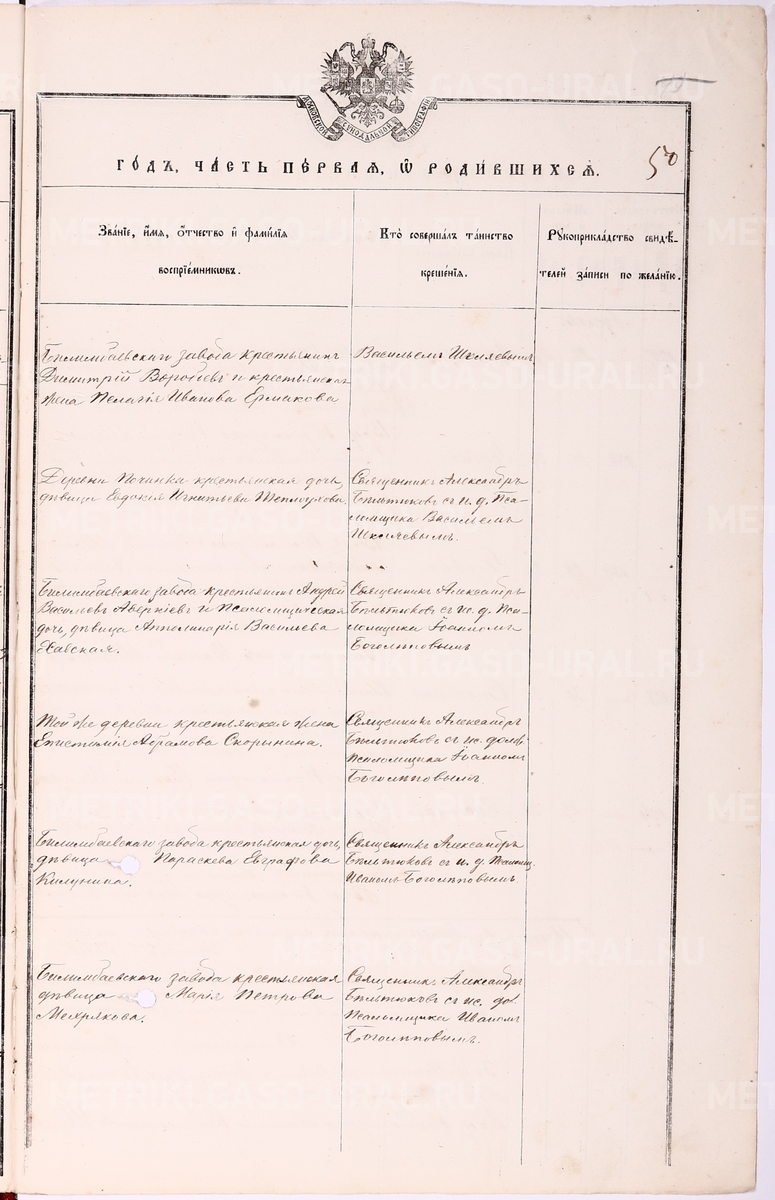 МОСКОВСКОЙ СѴНОДАЛЬНОЙ ТИПОГРАФІИ
50
ГО́ДЪ, ЧА́СТЬ ПЕ́РВАЯ, Ѡ҆ РОДИ́ВШИХСЯ.
Зва́нїе, и҆́мя, ѻ҆́тчество и҆ фами́лїя
воспрїе́мникѡвъ.
Кто̀ соверша́лъ та́инство
креще́нїя.
Рꙋкоприкла́дство свидѣ́-
телей за́писи по жела́нїю.
Билимбаевскаго завода крестьянинъ
Димитрій Воробьевъ и крестьянская
жена Пелагія Иванова Ермакова
Васильемъ Шкляевымъ
Деревни Починка крестьянская дочь,
дѣвица Евдокія Игнатьева Теплоухова.
Священникъ Александръ
Бѣльтюковъ съ и. д. Пса-
ломщика Васильемъ
Шкляевымъ.
Билимбаевскаго завода крестьянинъ Андрей
Васильевъ Аверкіевъ и Псаломщическая
дочь, дѣвица Апполинарія Васильева
Хавская.
Священникъ Александръ
Бѣльтюковъ съ и. д. Пса-
ломщика Іоанномъ
Боголѣповымъ
Той же деревни крестьянская жена
Епистимія Абрамова Скорынина.
Священникъ Александръ
Бѣльтюковъ съ ис. долж.
Псаломщика Іоанномъ
Боголѣповымъ.
Билимбаевскаго завода крестьянская дочь,
дѣвица Параскева Евграфова
Килунина.
Священникъ Александръ
Бѣльтюковъ съ и. д. Псаломщ.
Иваномъ Боголѣповымъ
Билимбаевскаго завода крестьянская
дѣвица Марія Петрова
Мехрякова.
Священникъ Александръ
Бѣльтюковъ съ ис. до.
Псаломщика Иваномъ
Боголѣповымъ.
METRIKI.GASO-URAL.RU